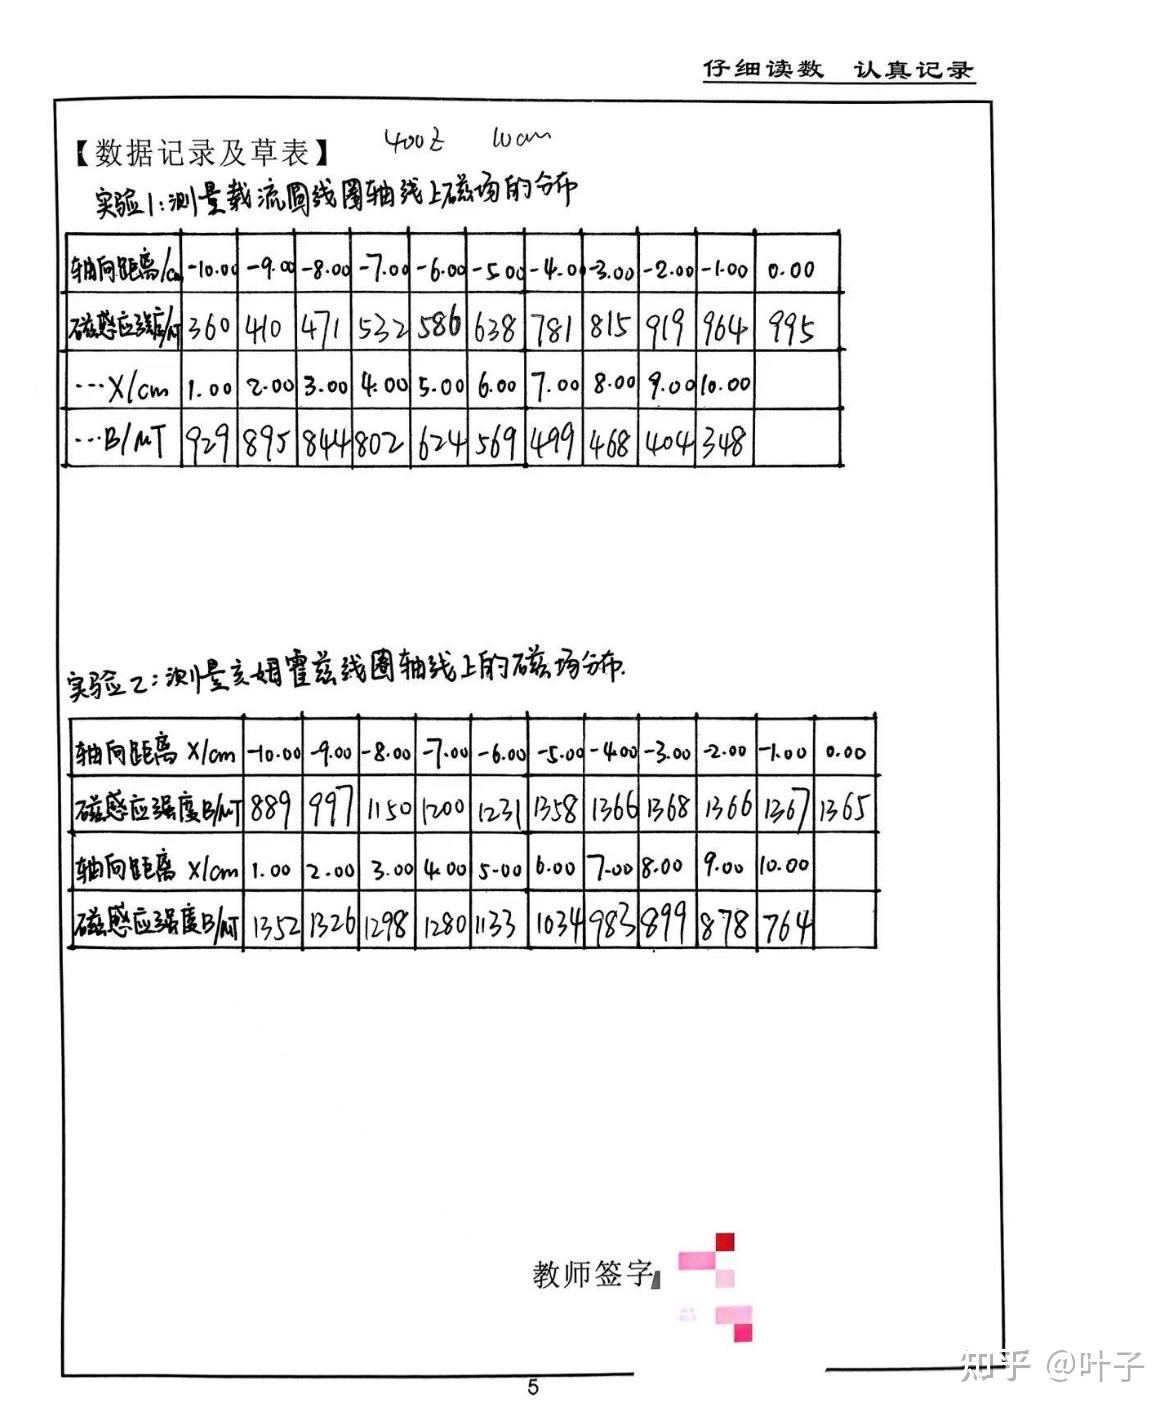 仔细读数 认真记录
【数据记录及草表】 400匝 10cm
实验1:测量载流圆线圈轴线上磁场的分布
轴向距离/cm -10.00 -9.00 -8.00 -7.00 -6.00 -5.00 -4.00 -3.00 -2.00 -1.00 0.00
磁感应强度/μT 360 410 471 532 586 638 781 815 919 964 995
…X/cm 1.00 2.00 3.00 4.00 5.00 6.00 7.00 8.00 9.00 10.00
…B/μT 929 895 844 802 624 569 499 468 404 348
实验2:测量亥姆霍兹线圈轴线上的磁场分布.
轴向距离 X/cm -10.00 -9.00 -8.00 -7.00 -6.00 -5.00 -4.00 -3.00 -2.00 -1.00 0.00
磁感应强度B/μT 889 997 1150 1200 1231 1358 1366 1368 1366 1367 1365
轴向距离 X/cm 1.00 2.00 3.00 4.00 5.00 6.00 7.00 8.00 9.00 10.00
磁感应强度B/μT 1352 1326 1298 1280 1133 1034 983 899 878 764
教师签字
知乎 @叶子
5